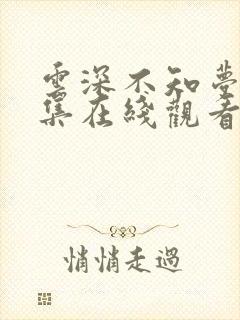 雲深不知夢
集在綫觀看
悄悄走過